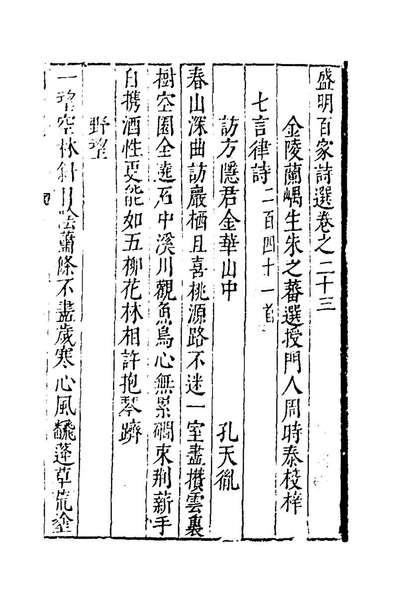 盛明百家詩選卷之二十三
金陵蘭嵎生朱之蕃選授門人周時泰校梓
七言律詩 二百四十一首
訪方隱君金華山中 孔天胤
春山深曲訪巖栖且喜桃源路不迷一室盡攢雲裏
樹空園全遶石中溪川觀魚鳥心無累磵束荆薪手
自携酒性更能如五柳花林相許抱琴躋
野望
一望空林斜日陰蕭條不盡歲寒心風飜蓬草荒塗